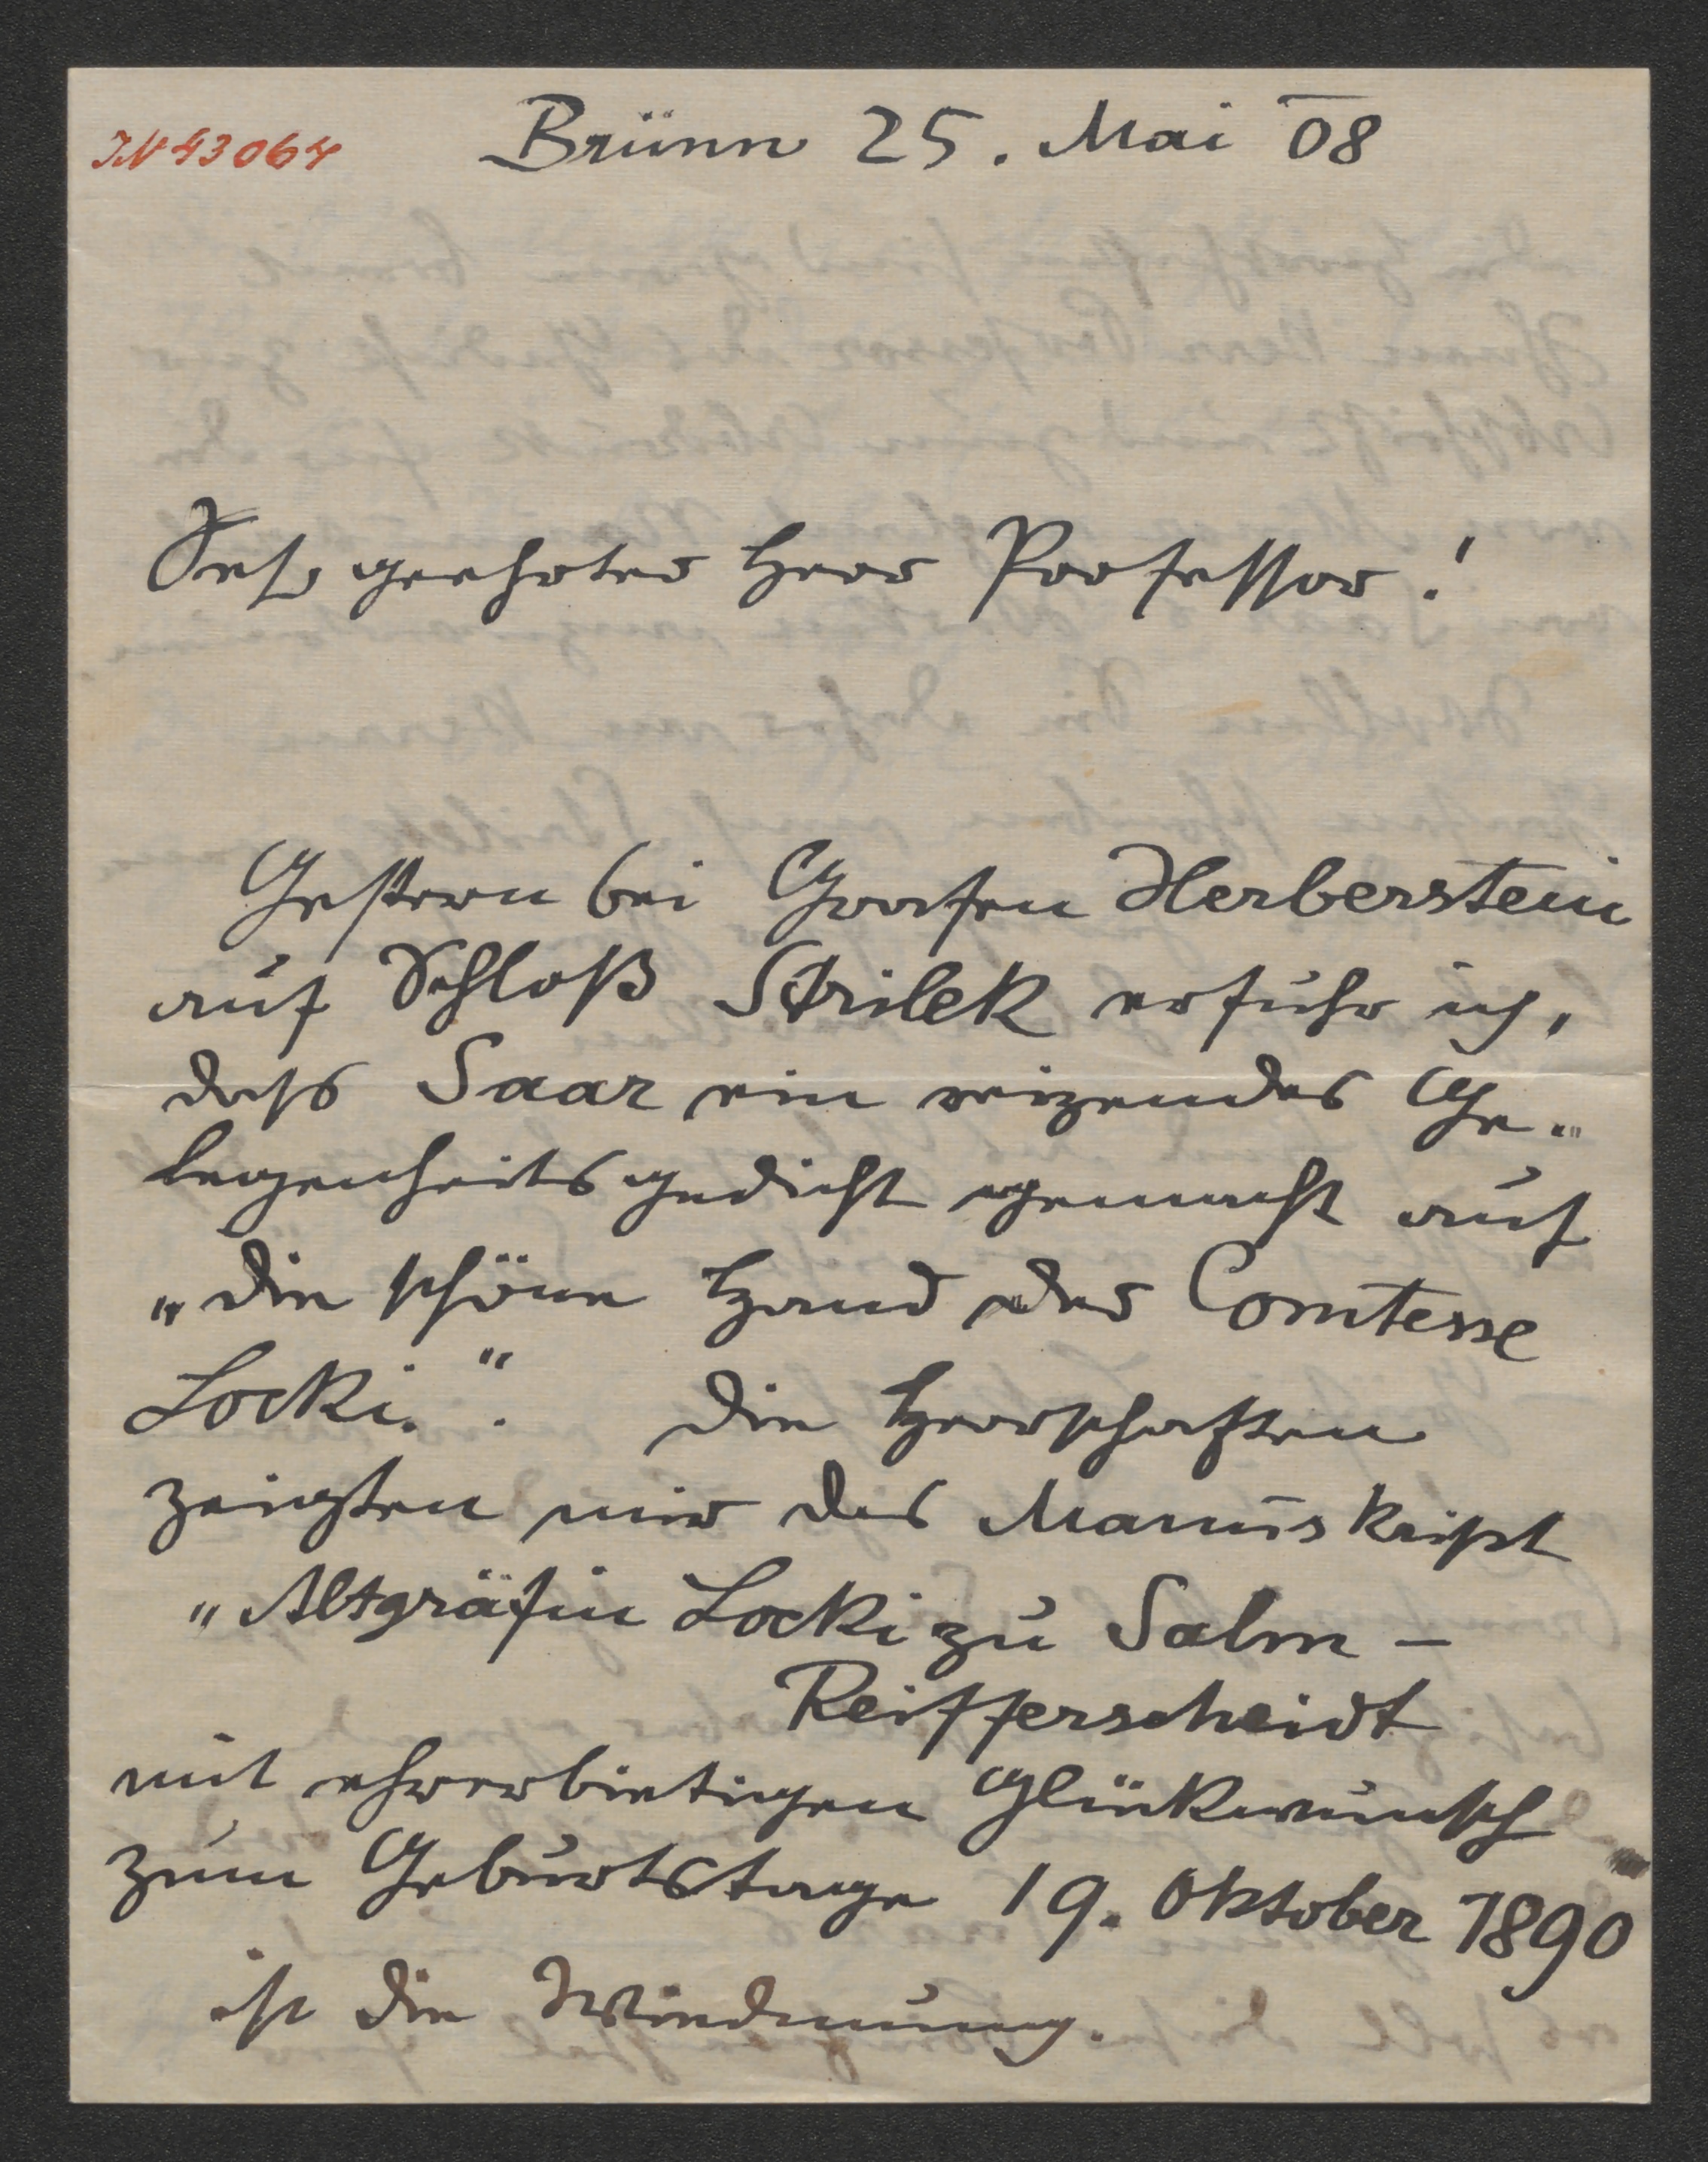 IN 43064
Brünn 25. Mai 08
Sehr geehrter Herr Professor!
Gestern bei Grafen Herberstein
auf Schloß Strilek erfuhr ich,
dass Saar ein reizendes Ge-
legenheitsgedicht gemacht auf
„die schöne Hand der Comtesse
Locki.“. Die Herrschaften
zeigten mir das Manuskript
„Altgräfin Locki zu Salm-
Reifferscheidt
mit ehrerbietigen Glückwunsch
zum Geburtstage 19. Oktober 1890
ist die Wiedmung.